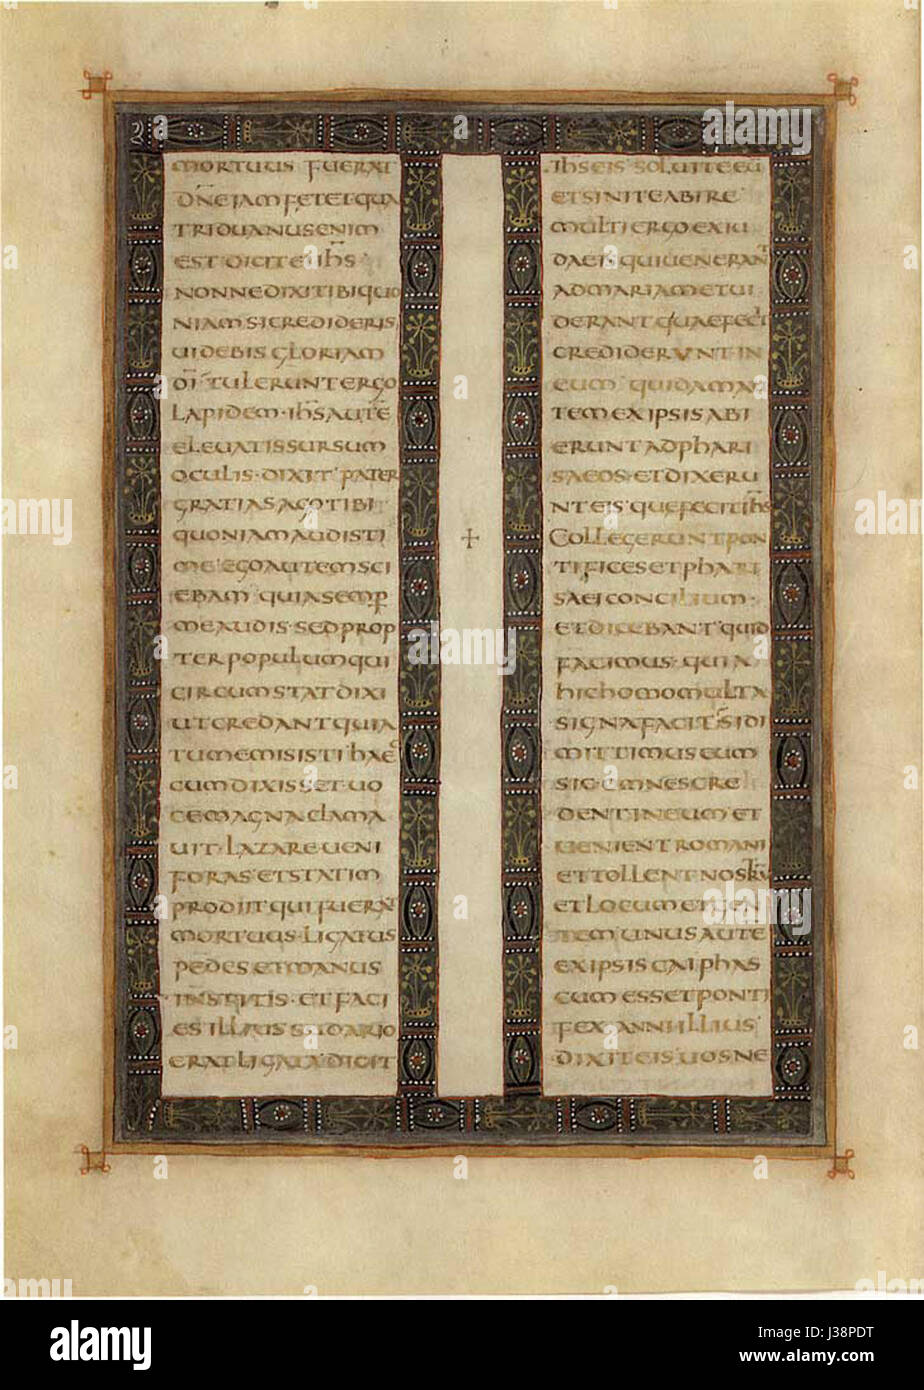 MORTUUS FUERAT
DN̄E IAM FETET QUA
TRIDUANUS ENIM
EST DICIT EI IHS̄
NONNE DIXI TIBI QUO
NIAM SI CREDIDERIS
UIDEBIS GLORIAM
DĪ TULERUNT ERGO
LAPIDEM · IHS̄ AUTĒ
ELEUATIS SURSUM
OCULIS · DIXIT · PATER
GRATIAS AGO TIBI
QUONIAM AUDISTI
ME · EGO AUTEM SCI
EBAM QUIA SEMP̄
ME AUDIS · SED PROP
TER POPULUM QUI
CIRCUMSTAT DIXI
UT CREDANT QUIA
TU ME MISISTI · HAEC
CUM DIXISSET · UO
CE MAGNA CLAMA
UIT · LAZARE UENI
FORAS · ET STATIM
PRODIIT QUI FUERAT
MORTUUS · LIGATUS
PEDES ET MANUS
INSTITIS · ET FACI
ES ILLIUS SUDARIO
ERAT LIGATA · DICIT
IHS̄ EIS SOLUITE EŪ
ET SINITE ABIRE
MULTI ERGO EX IU
DAEIS · QUI UENERANT
AD MARIAM ET UI
DERANT QUAE FECIT
CREDIDERUNT IN
EUM · QUIDAM AU
TEM EX IPSIS ABI
ERUNT AD PHARI
SAEOS · ET DIXERU
NT EIS · QUE FECIT IHS̄
COLLEGERUNT PON
TIFICES ET PHARI
SAEI CONCILIUM ·
ET DICEBANT · QUID
FACIMUS · QUIA
HIC HOMO MULTA
SIGNA FACIT · SI DI
MITTIMUS EUM
SIC · OMNES CRE
DENT IN EUM ET
UENIENT ROMANI
ET TOLLENT NOSTRŪ
ET LOCUM ET GEN
TEM UNUS AUTĒ
EX IPSIS CAIPHAS
CUM ESSET PONTI
FEX ANNI ILLIUS
DIXIT EIS · UOS NE
alamy
Image ID: J38PDT
www.alamy.com